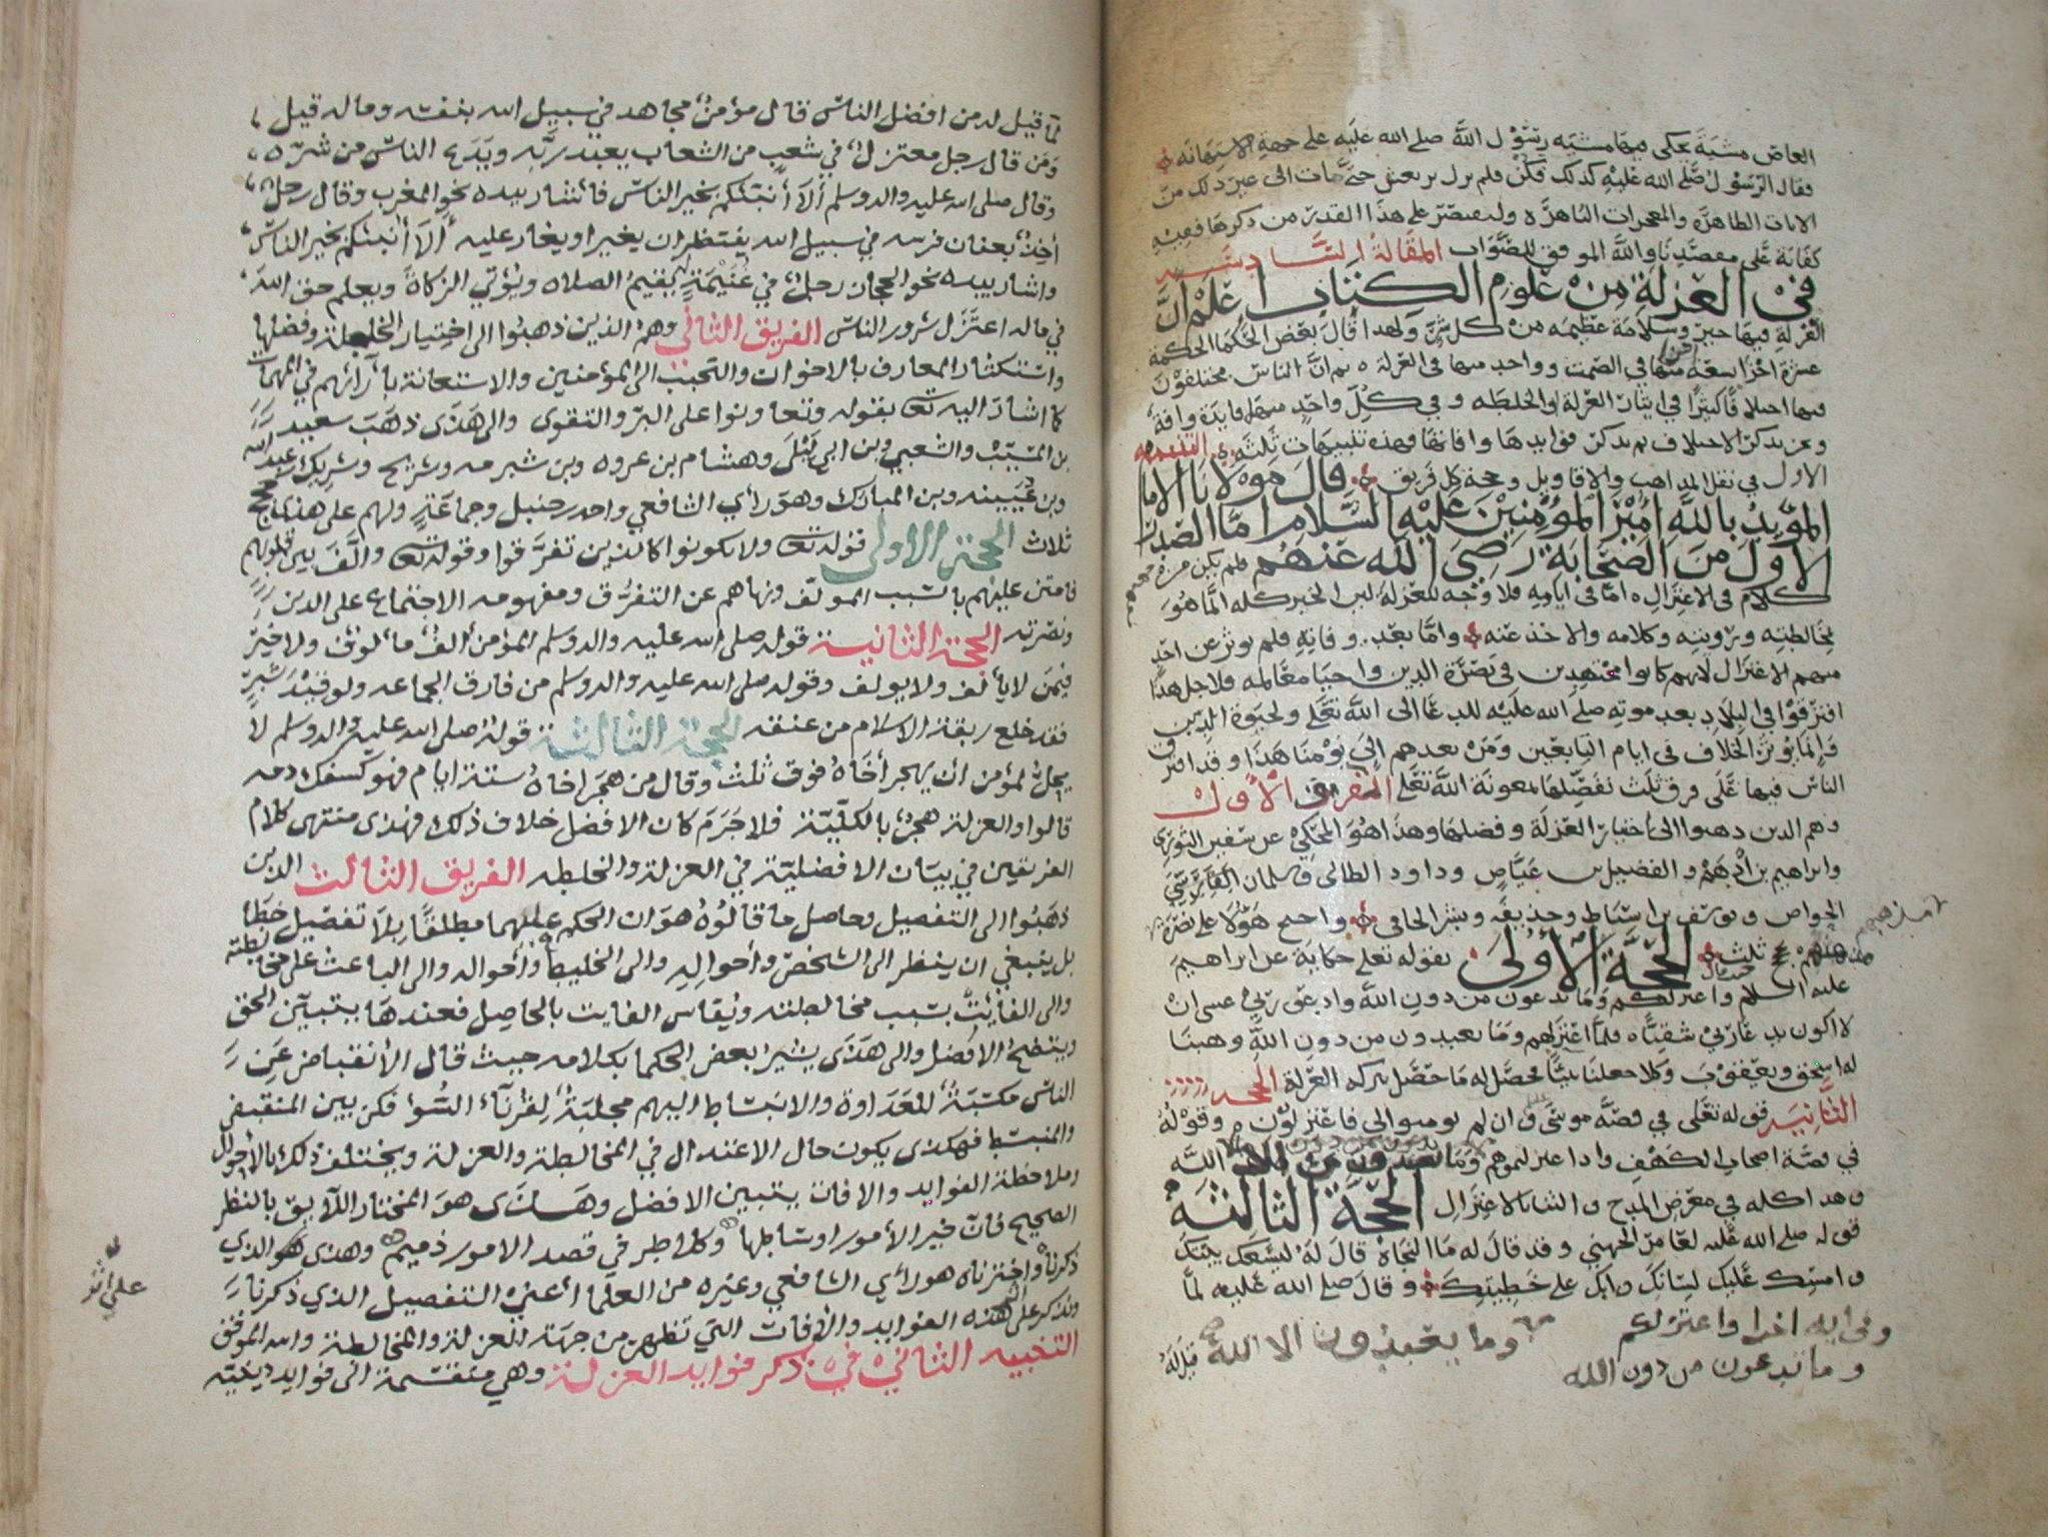 العاص مشية يحكى فيها مشية رسول الله صلى الله عليه على جهة الاستهانة
فقال الرسول صلى الله عليه كذلك فكن فلم يزل يرتعش حتى مات الى غير ذلك من
الايات الظاهرة والمعجزات الباهرة ولنقتصر على هذا القدر من ذكرها ففيه
كفاية على مقصدنا والله الموفق للصواب المقالة السادسة
في العزلة من علوم الكتاب اعلم ان
العزلة فيها خير وسلامة عظيمة من كل شر ولهذا قال بعض الحكما الحكمة
عشرة اجزا تسعة منها في الصمت وواحد منها في العزلة ثم ان الناس مختلفون
فيها اختلافا كثيرا في ايثار العزلة او الخلطة وفي كل واحد منهما فايدة وافة
ونحن نذكر الاختلاف ثم نذكر فوايدها وافاتها فهذه تنبيهات ثلثة التنبيه
الاول في نقل المذاهب والاقاويل وحجة كل فريق قال مولانا الامام
المؤيد بالله امير المؤمنين عليه السلام اما الصدر
الاول من الصحابة رضي الله عنهم فلم يكن منهم
كلام في الاعتزال اما في ايامه فلا وجه للعزلة لان الخير كله انما هو
بمخالطته ورؤيته وكلامه والاخذ عنه واما بعد وفاته فلم يوثر عن احد
منهم الاعتزال لانهم كانوا مجتهدين في نصرة الدين واحيا معالمه فلاجل هذا
افترقوا في البلاد بعد موته صلى الله عليه للدعا الى الله تعالى ولحيوة الدين
وانما يوثر الخلاف في ايام التابعين ومن بعدهم الى يومنا هذا وقد افترق
الناس فيها على فرق ثلث نفصلها بمعونة الله تعالى الفريق الاول
وهم الذين ذهبوا الى اختيار العزلة وفضلها وهذا هو المحكي عن سفين الثوري
وابراهيم بن ادهم والفضيل بن عياض وداود الطائي وسلمان الفارسي
الخواص ويوسف بن اسباط وحذيفة وبشر الحافي واحتج هؤلا على نصرة
مذهبهم
ثلث الحجة الأولى بقوله تعلى حكاية عن ابراهيم
عليه السلام واعتزلكم وما تدعون من دون الله وادعو ربي عسى ان
لا اكون بدعا ربي شقيا فلما اعتزلهم وما يعبدون من دون الله وهبنا
له اسحق ويعقوب وكلا جعلنا نبيا فحصل له ما حصل ببركة العزلة الحجة
الثانية قوله تعلى في قصة موسى وان لم تومنوا لي فاعتزلون وقوله
في قصة اصحاب الكهف واذا اعتزلتموهم وما يعبدون الا الله
وهذا كله في معرض المدح والثنا بالاعتزال الحجة الثالثة
قوله صلى الله عليه لعامر الجهني وقد قال له ما النجاة قال له ليسعك بيتك
وامسك عليك لسانك وابك على خطيئتك وقال صلى الله عليه لما
وفي اية اخرا واعتزلكم وما يعبدون الا الله
وما تدعون من دون الله
قيل له
لما قيل له من افضل الناس قال مؤمن مجاهد في سبيل الله بنفسه وماله قيل
ومن قال رجل معتزل في شعب من الشعاب يعبد ربه ويدع الناس من شره
وقال صلى الله عليه واله وسلم ألا أنبئكم بخير الناس فأشار بيده نحو المغرب وقال رجل
أخذ بعنان فرسه في سبيل الله ينتظر ان يغير او يغار عليه ألا أنبئكم بخير الناس
واشار بيده نحو الحجاز رجل في غنيمة يقيم الصلاه ويؤتي الزكاة ويعلم حق الله
في ماله اعتزل شرور الناس الفريق الثاني وهم الذين ذهبوا الى اختيار الخلطة وفضلها
واستكثار المعارف بالاخوان والتحبب الى المؤمنين والاستعانة بأرائهم في المهمات
كما اشار اليه تعا بقوله وتعاونوا على البر والتقوى والى هذى ذهب سعيد
بن المسيب والشعبي وبن ابي ليلى وهشام بن عروه وبن شبرمه وشريح وشريك بن عبد الله
وبن عيينه وبن المبارك وهو رأي الشافعي واحمد بن حنبل وجماعة ولهم على هذا حجج
ثلاث الحجة الاولى قوله تعا ولا تكونوا كالذين تفرقوا وقوله تعا وألف بين قلوبهم
فامتن عليهم بالسبب المؤلف ونهاهم عن التفرق ومفهومه الاجتماع على الدين
ونصرته الحجة الثانية قوله صلى الله عليه واله وسلم المؤمن ألف مألوف ولا خير
فيمن لا يألف ولا يولف وقوله صلى الله عليه واله وسلم من فارق الجماعه ولو قيد شبر
فقد خلع ربقة الاسلام من عنقه الحجة الثالثة قوله صلى الله عليه واله وسلم لا
يحل لمؤمن ان يهجر أخاه فوق ثلث وقال من هجر اخاه ستة ايام فهو كسفك دمه
قالوا والعزلة هجر بالكلية فلا جرم كان الافضل خلاف ذلك فهذى منتهى كلام
الفريقين في بيان الافضلية في العزلة والخلطه الفريق الثالث الذين
ذهبوا الى التفصيل وحاصل ما قالوه هو ان الحكم عليهما مطلقا بلا تفصيل خطا
بل ينبغي ان ينظر الى الشخص وأحواله والى الخليط وأحواله والى الباعث على مخالطته
والى الفائت بسبب مخالطته ويقاس الفايت بالحاصل فعندها يتبين الحق
ويتضح الافضل والى هذى يشير بعض الحكما بكلامه حيث قال الأنقباض عن
الناس مكسبة للعداوة والانبساط اليهم مجلبة لقرناء السوء فكن بين المنقبض
والمنبسط فهكذى يكون حال الاعتدال في المخالطة والعزلة ويختلف ذلك بالأحوال
وملاحظة الفوايد والافات يتبين الافضل وهذى هو المختار اللايق بالنظر
الصحيح فان خير الأمور اوساطها وكلا طرفي قصد الامور ذميم وهذى هو الذي
ذكرناه واخترناه هو رأي الشافعي وغيره من العلما أعني التفصيل الذي ذكرنا
ولنذكر على أثر هذه الفوايد والأفات التي تظهر من جهة العزلة والمخالطة والله الموفق
التنبيه الثاني في ذكر فوايد العزلة وهي منقسمة الى فوايد دينيه
على اثر